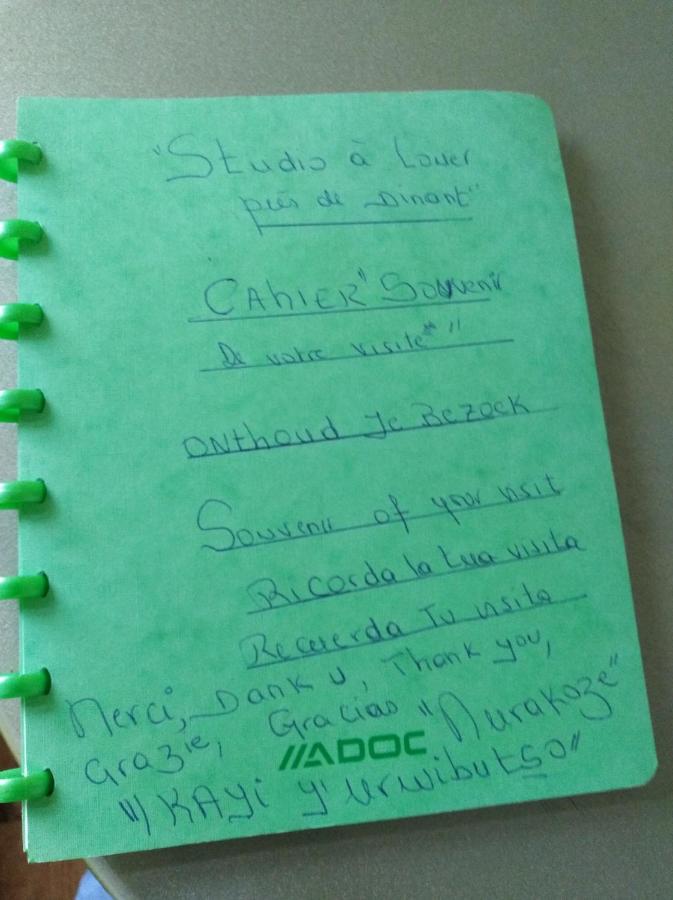 "Studio à Louer
près de Dinant"
CAhiER "Souvenir
De votre visite" "
ONthoud Je BEZOEK
Souvenir of your visit
Ricorda la tua visita
Recuerda Tu visita
Merci, Dank u, Thank you,
Grazie, Gracias "Murakoze"
//ADOC
"/ KAyi y'urwibutso"